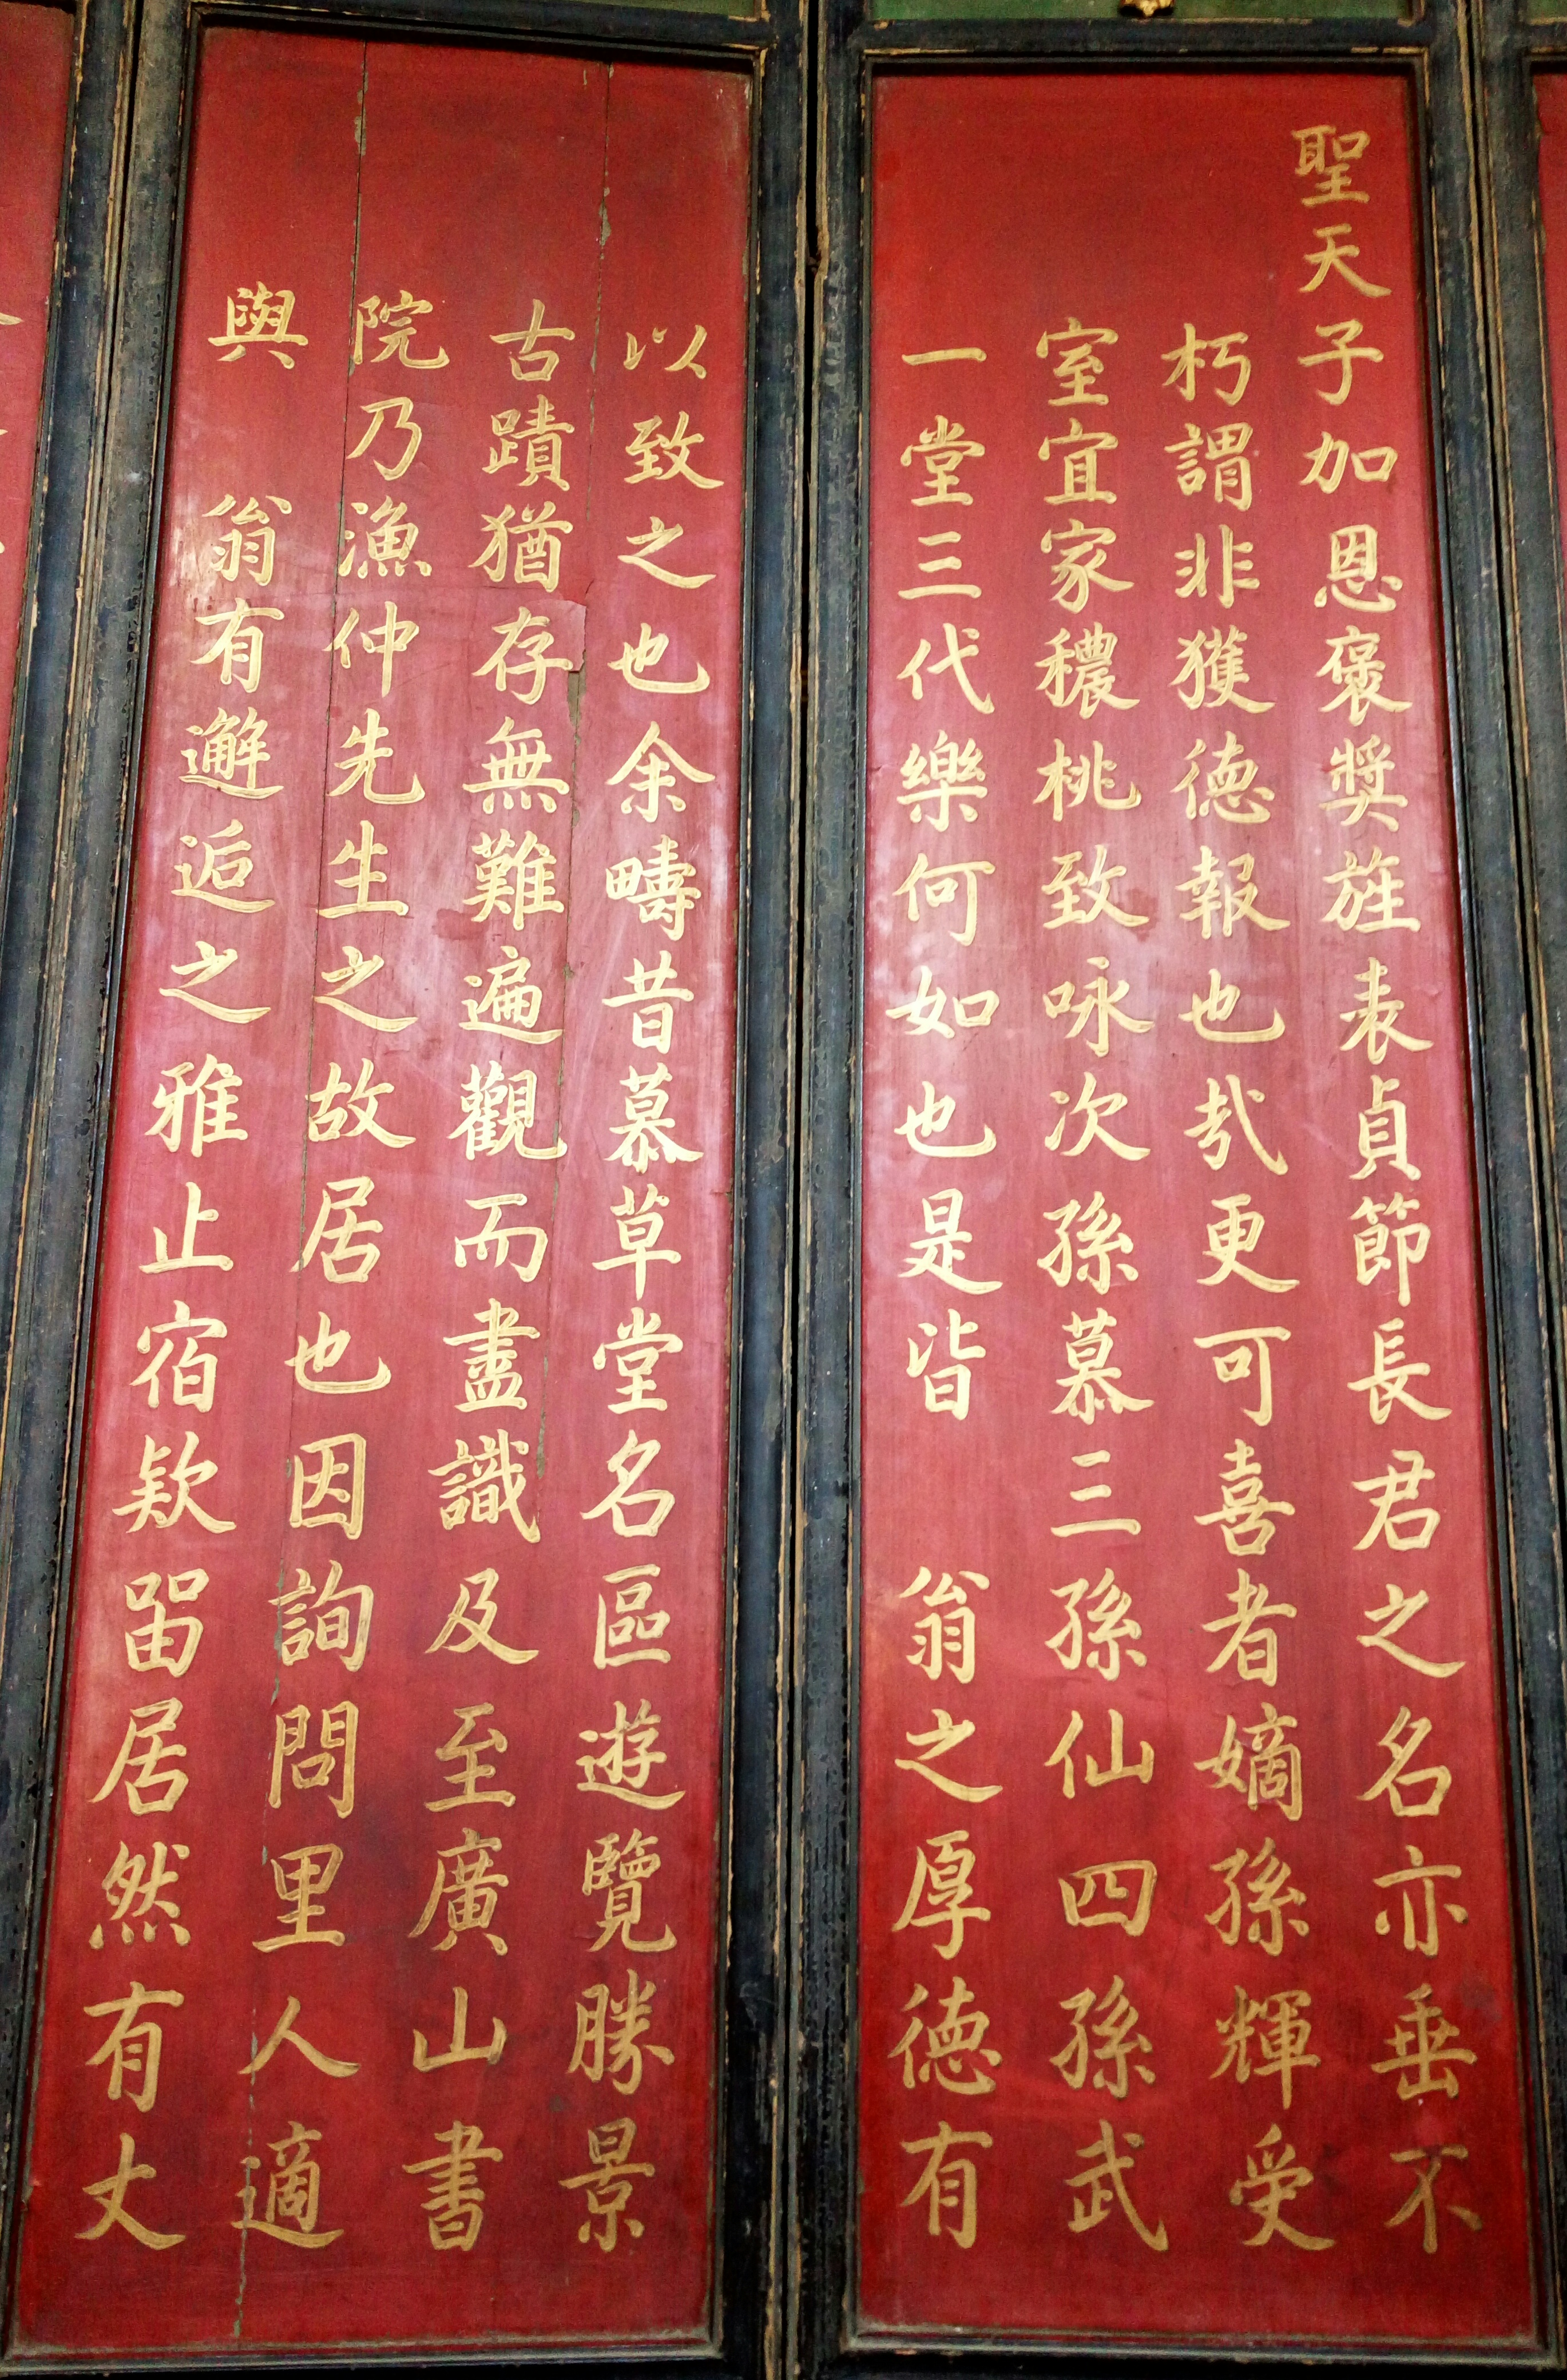 聖天子加恩褒獎旌表貞節長君之名亦垂不
朽謂非獲德報也哉更可喜者嫡孫輝受
室宜家穠桃致咏次孫慕三孫仙四孫武
一堂三代樂何如也是皆 翁之厚德有
以致之也余疇昔慕草堂名區遊覽勝景
古蹟猶存無難遍觀而盡識及至廣山書
院乃漁仲先生之故居也因詢問里人適
與 翁有邂逅之雅止宿欵留居然有丈